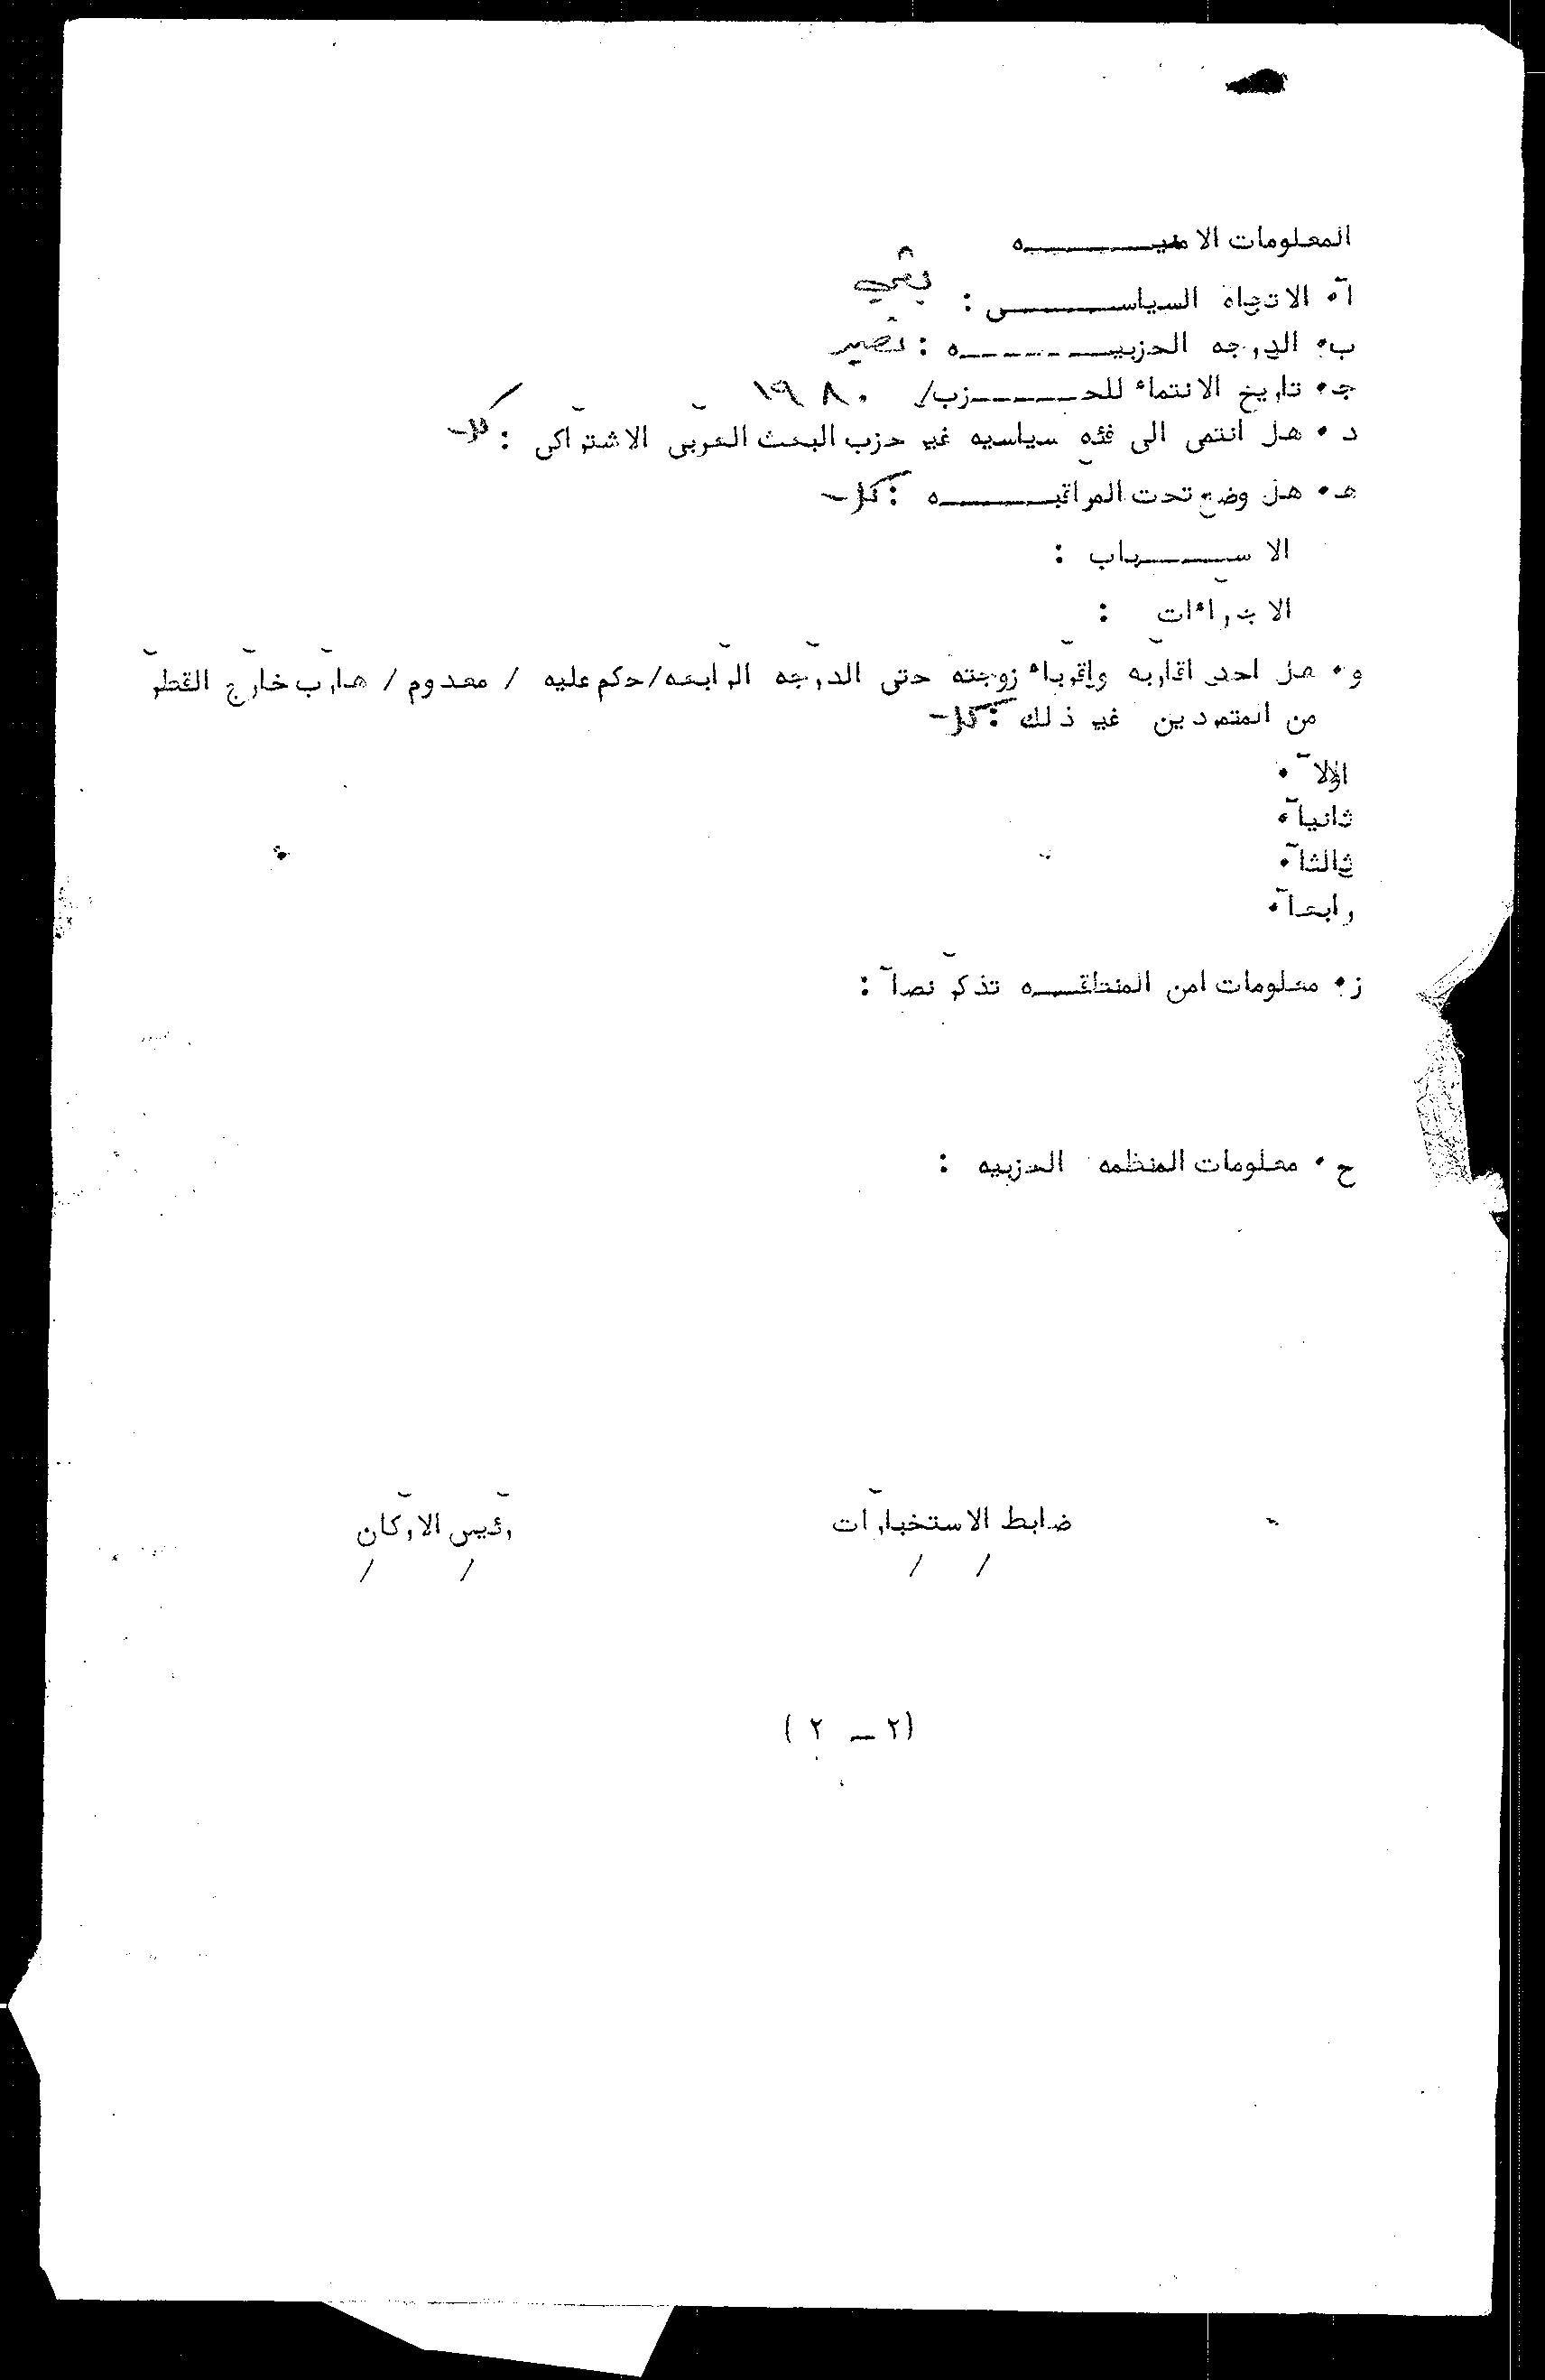 المعلومات الامنيـــــــــه
آ• الاتجاه السياســــــــــى : بعثي
ب• الدرجه الحزبيـــــــــه : نصير
جـ• تاريخ الانتماء للحــــــزب/ ١٩٨٠
د • هل انتمى الى فئه سياسيه غير حزب البعث العربى الاشتراكى : كلا-
هـ• هل وضع تحت المراقبـــــــه : كلا-
الاسبـــــــاب :
الاجراءات :
و• هل احد اقاربه واقرباء زوجته حتى الدرجه الرابعه/حكم عليه / معدوم / هارب خارج القطر
من المتمردين غير ذلك : كلا-
اولا •
ثانيا•
ثالثا•
رابعا•
ز• معلومات امن المنطقـــه تذكر نصا :
ح • معلومات المنظمه الحزبيه :
ضابط الاستخبارات رئيس الاركان
/ / / /
(٢ - ٢)